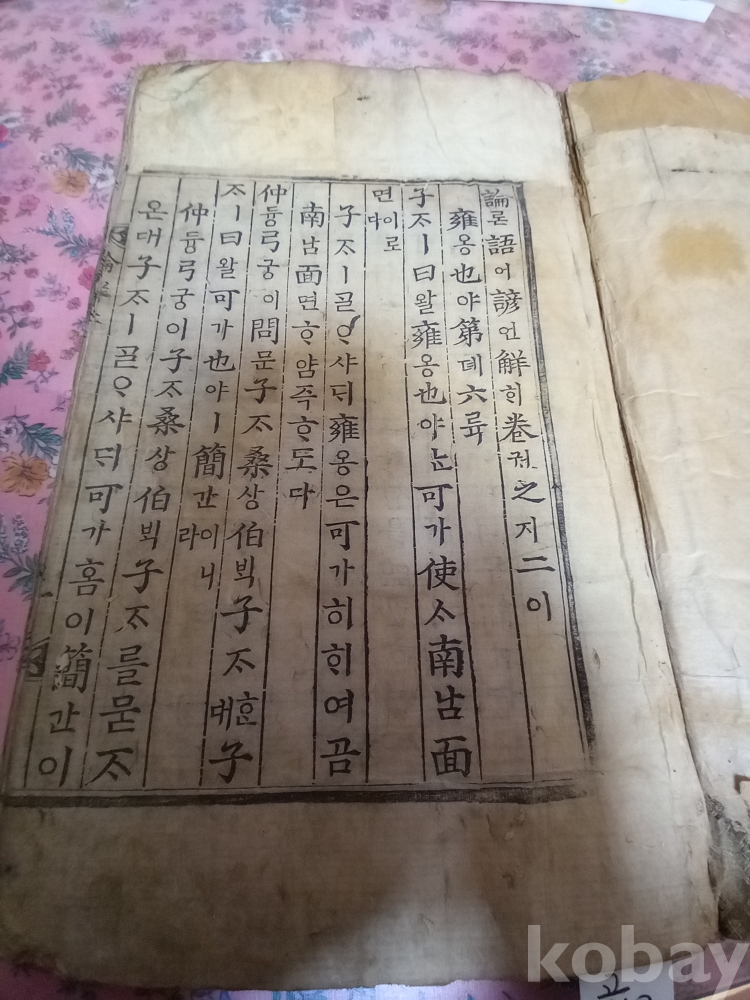 論론語어諺언觧ᄒᆡ卷권之지二이
雍옹也야第뎨六륙
子ᄌᆞㅣ曰왈雍옹也야ᄂᆞᆫ可가使ᄉᆞ南남面
면이로다
子ᄌᆞㅣᄀᆞᆯᄋᆞ샤ᄃᆡ雍옹은可가히ᄒᆡ여곰
南남面면ᄒᆞ얌즉ᄒᆞ도다
仲듕弓궁이問문子ᄌᆞ桑상伯ᄇᆡᆨ子ᄌᆞᄒᆞᆫ대子
ᄌᆞㅣ曰왈可가也야ㅣ簡간이니라
仲듕弓궁이子ᄌᆞ桑상伯ᄇᆡᆨ子ᄌᆞ를묻ᄌᆞ
온대子ᄌᆞㅣᄀᆞᆯᄋᆞ샤ᄃᆡ可가홈이簡간이
kobay